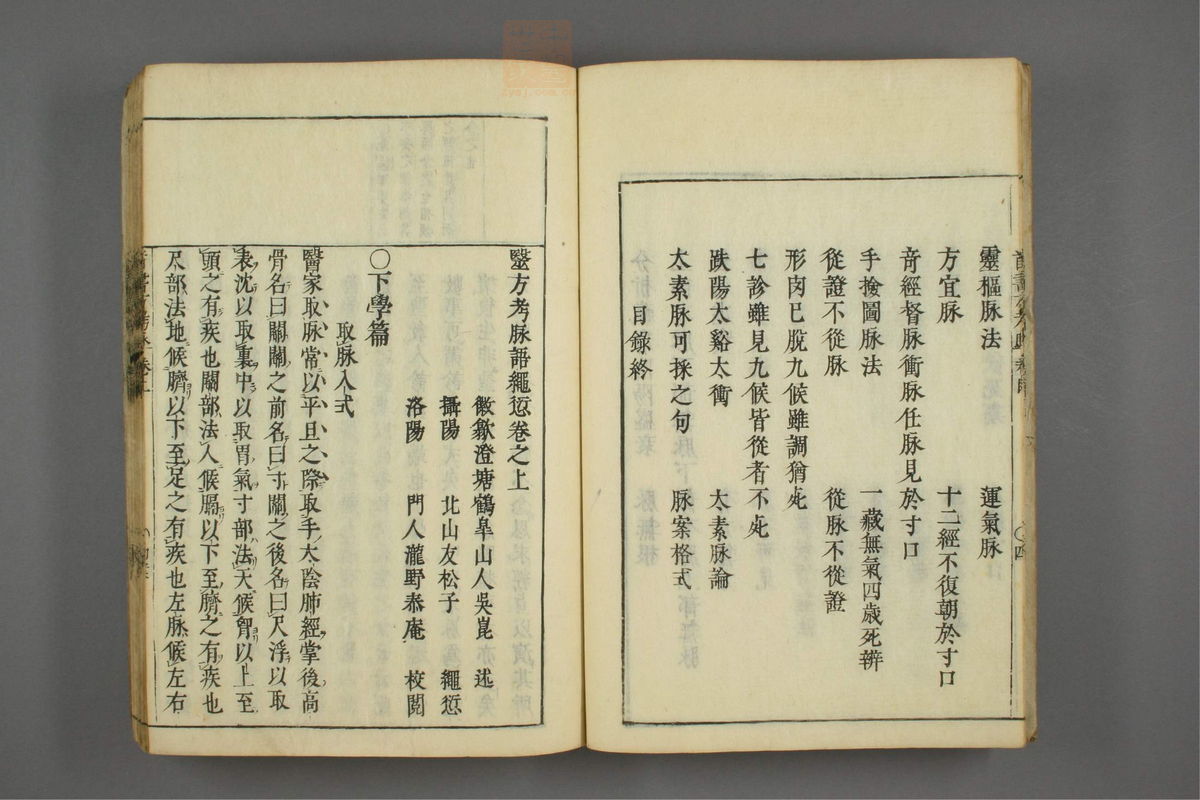 靈樞脉法　運氣脉
方宜脉　十二經不復朝於寸口
奇經督脉衝脉任脉見於寸口
手撿圖脉法　一藏無氣四歲死辨
從證不從脉　從脉不從證
形肉已脫九候雖調猶死
七診雖見九候皆從者不死
趺陽太谿太衝　太素脉論
太素脉可採之句　脉案格式
目錄終
毉方考脉語繩愆卷之上
徽歙澄塘鶴皐山人吳崑　述
攝陽　北山友松子　繩愆
洛陽　門人瀧野泰庵　校閱
○下學篇
取脉入式
醫家取脉常以平旦之際取手太陰肺經掌後高
骨名曰關關之前名曰寸關之後名曰尺浮以取
表沈以取裏中以取胃氣寸部法天候胷以上至
頭之有疾也關部法人候膈以下至臍之有疾也
尺部法地候臍以下至足之有疾也左脉候左右